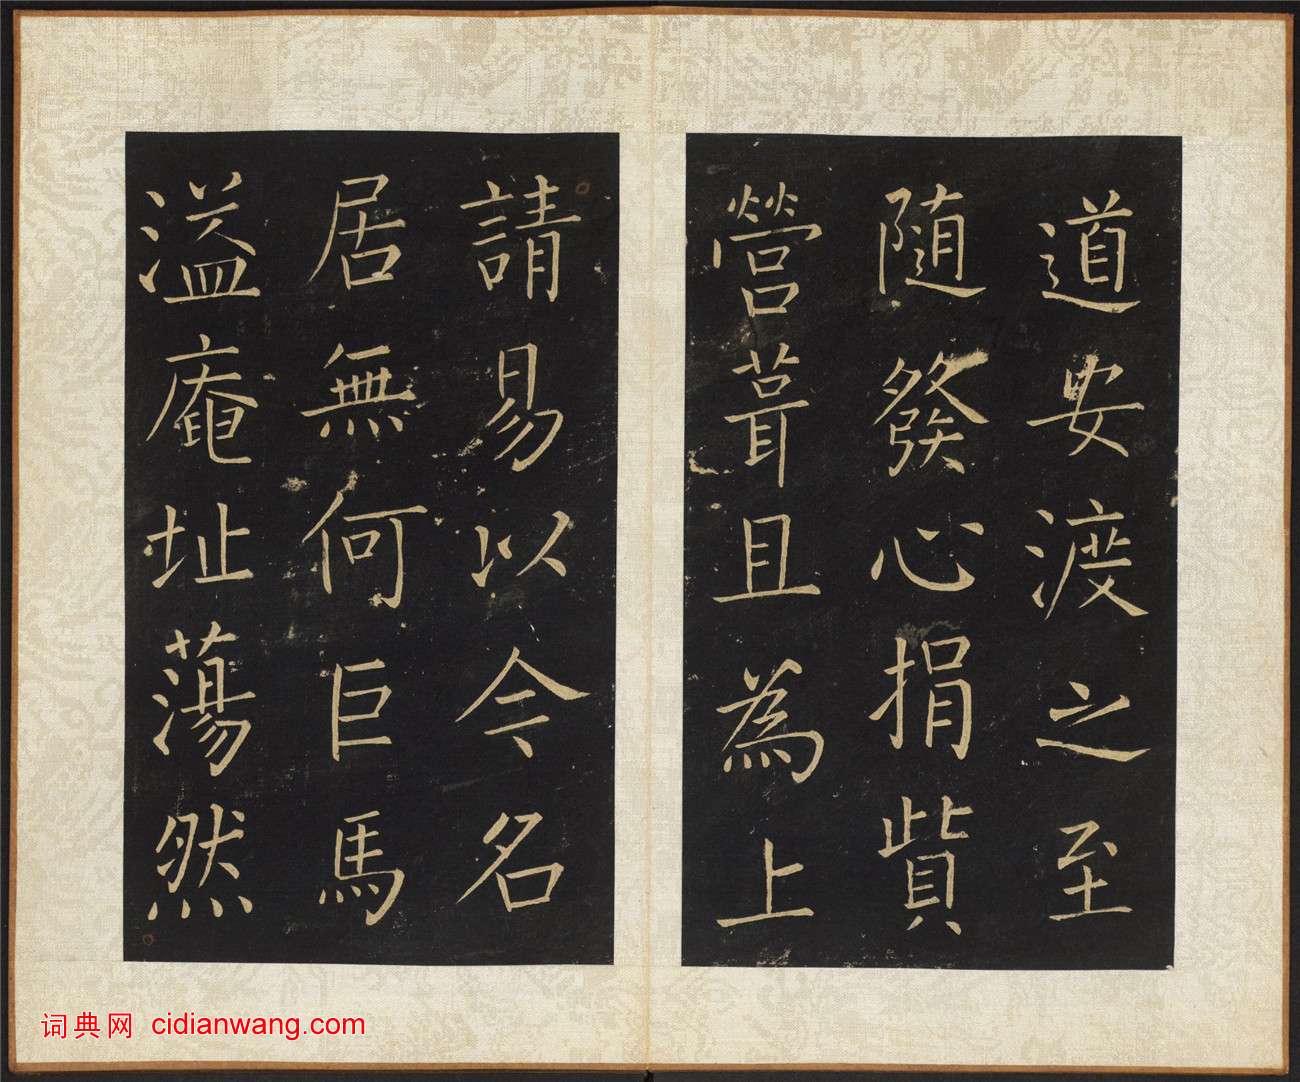 道安渡之至
随發心捐貲
營葺且為上
請易以今名
居無何巨馬
溢庵址蕩然
词典网 cidianwang.com